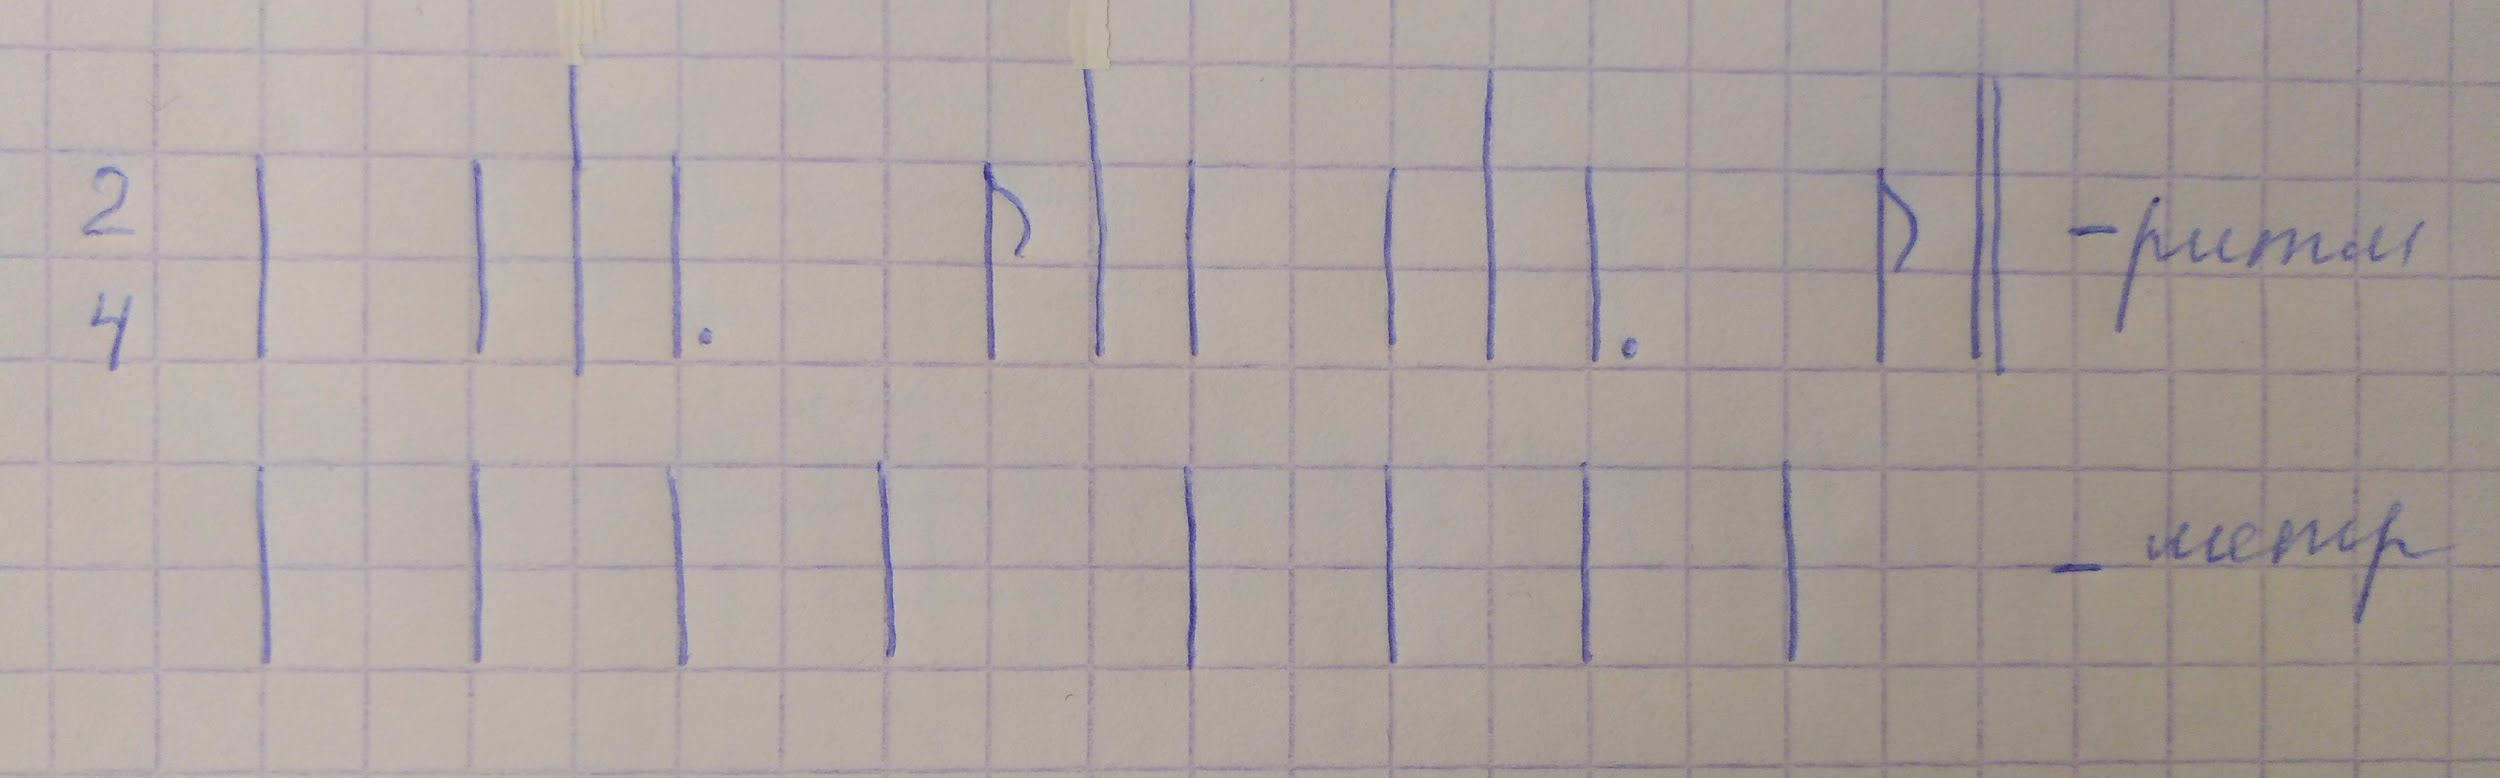 2
4
- ритм
- метр